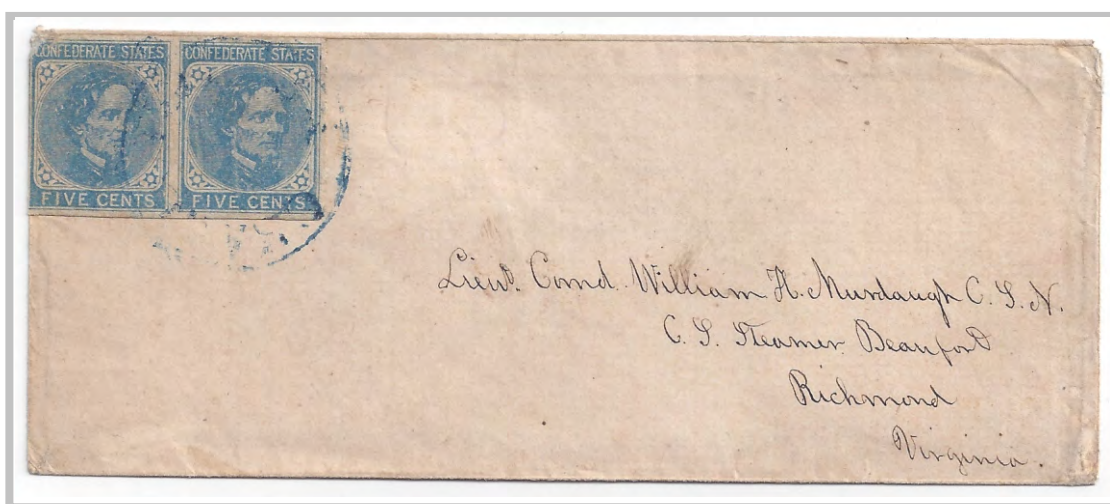 CONFEDERATE STATES CONFEDERATE STATES
FIVE CENTS FIVE CENTS
Lieut. Comd. William H. Murdaugh C. S. N.
C. S. Steamer Beaufort
Richmond
Virginia.